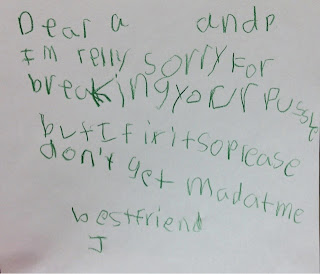 Dear a andp
I'm relly sorry For
breaKingyour pussle
butIfixitsoprease
don't get madatme
bestfriend
J